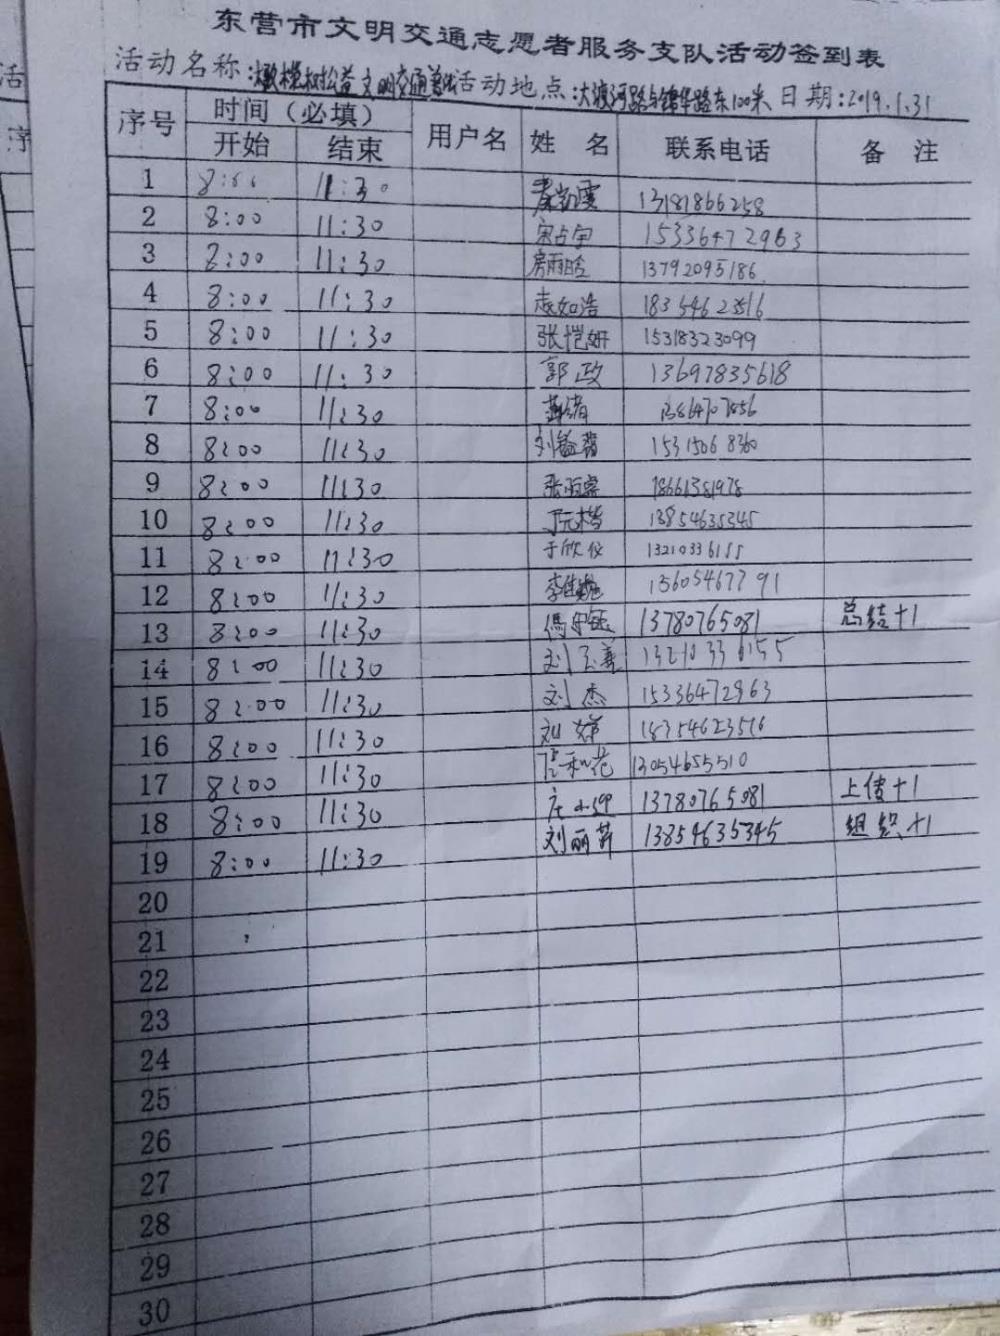 东营市文明交通志愿者服务支队活动签到表
活动名称:橄榄树公益文明交通 活动地点:大渡河路与锦华路东100米 日期:2019.1.31
序号 时间(必填) 用户名 姓 名 联系电话 备 注
开始 结束
1 8:00 11:30 13181866258
2 8:00 11:30 宋占宇 15336472963
3 8:00 11:30 房雨晗 13792095186
4 8:00 11:30 志如浩 18354623516
5 8:00 11:30 张恺妍 15318323099
6 8:00 11:30 郭政 13697835618
7 8:00 11:30 13864707856
8 8:00 11:30 15315068360
9 8:00 11:30 18661381978
10 8:00 11:30 13854635345
11 8:00 11:30 于欣仪 13210336155
12 8:00 11:30 15605467791
13 8:00 11:30 13780765081 总结+1
14 8:00 11:30 刘玉美 13210336155
15 8:00 11:30 刘杰 15336472963
16 8:00 11:30 刘 18354623516
17 8:00 11:30 13054655510
18 8:00 11:30 庄 13780765081 上传+1
19 8:00 11:30 刘丽 13854635345 组织+1
20
21
22
23
24
25
26
27
28
29
30
活
序